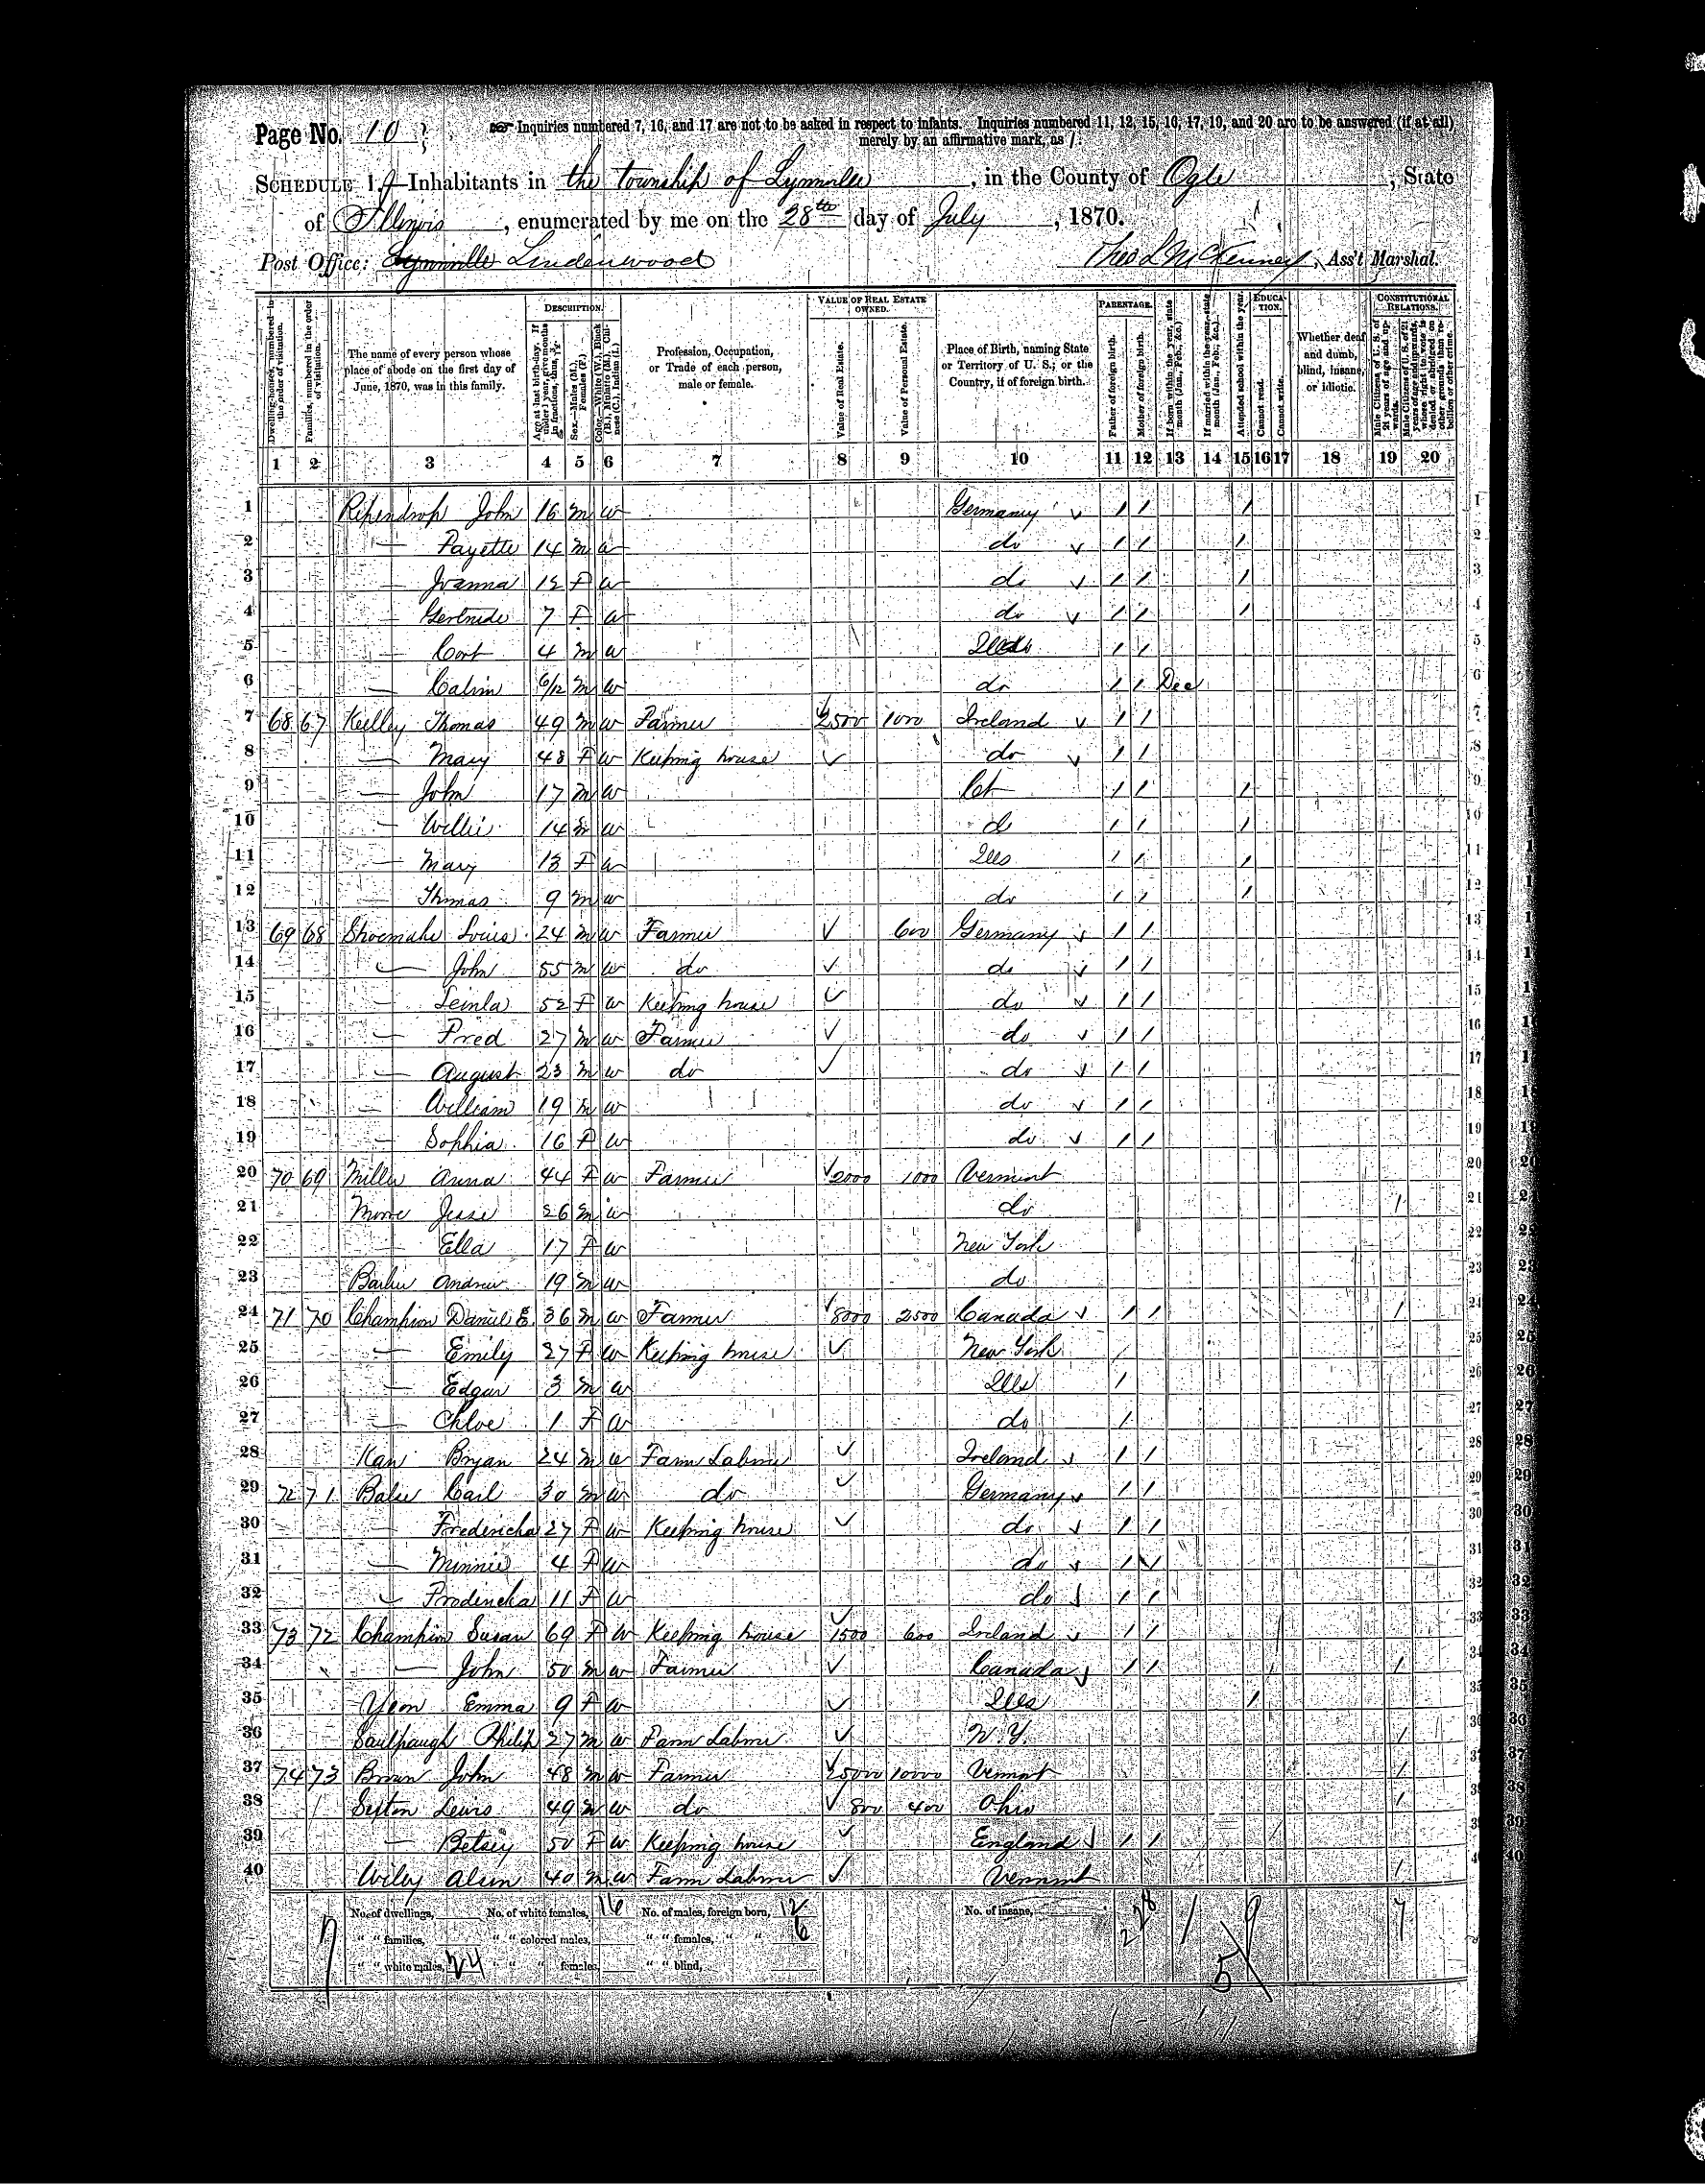 Page No. 10
☞ Inquiries numbered 7, 16, and 17 are not to be asked in respect to infants. Inquiries numbered 11, 12, 15, 16, 17, 19, and 20 are to be answered (if at all)
merely by an affirmative mark, as /.
SCHEDULE 1.—Inhabitants in the township of Lynnville, in the County of Ogle, State
of Illinois, enumerated by me on the 28th day of July, 1870.
Post Office: Lynnville Lindenwood Theo L McKenney, Ass't Marshal.
DESCRIPTION. VALUE OF REAL ESTATE OWNED. PARENTAGE. EDUCATION. CONSTITUTIONAL RELATIONS.
Dwelling-houses, numbered in the order of visitation.
Families, numbered in the order of visitation.
The name of every person whose place of abode on the first day of June, 1870, was in this family.
Age at last birth-day. If under 1 year, give months in fractions, thus, 3/12
Sex.—Males (M.), Females (F.)
Color.—White (W.), Black (B.), Mulatto (M.), Chinese (C.), Indian (I.)
Profession, Occupation, or Trade of each person, male or female.
Value of Real Estate.
Value of Personal Estate.
Place of Birth, naming State or Territory of U. S.; or the Country, if of foreign birth.
Father of foreign birth.
Mother of foreign birth.
If born within the year, state month (Jan., Feb., &c.)
If married within the year, state month (Jan., Feb., &c.)
Attended school within the year.
Cannot read.
Cannot write.
Whether deaf and dumb, blind, insane, or idiotic.
Male Citizens of U. S. of 21 years of age and upwards.
Male Citizens of U. S. of 21 years of age and upwards, whose right to vote is denied or abridged on other grounds than rebellion or other crime.
1 2 3 4 5 6 7 8 9 10 11 12 13 14 15 16 17 18 19 20
1 Ripendrop John 16 M W Germany / / /
2 — Fayette 14 M W do / / /
3 — Joanna 12 F W do / / /
4 — Gertrude 7 F W do / / /
5 — Cort 4 M W Ills / /
6 — Calvin 6/12 M W do / / Dec
7 68 67 Kelley Thomas 49 M W Farmer 2500 1000 Ireland / /
8 — Mary 48 F W Keeping house do / /
9 — John 17 M W Ct / / /
10 — Willie 14 M W do / / /
11 — Mary 13 F W Ills / / /
12 — Thomas 9 M W do / / /
13 69 68 Shoemake Louis 24 M W Farmer 600 Germany / /
14 — John 55 M W do do / /
15 — 52 F W Keeping house do / /
16 — Fred 27 M W Farmer do / /
17 — August 23 M W do do / /
18 — William 19 M W do / /
19 — Sophia 16 F W do / /
20 70 69 Miller Anna 44 F W Farmer 2000 1000 Vermont
21 Jesse 26 M W do /
22 — Ella 17 F W New York
23 Barber Andrew 19 M W do
24 71 70 Champion Daniel E. 36 M W Farmer 8000 2500 Canada / / /
25 — Emily 27 F W Keeping house New York /
26 — Edgar 3 M W Ills /
27 — Chloe 1 F W do /
28 Bryan 24 M W Farm Laborer Ireland / /
29 72 71 Baker Carl 30 M W do Germany / /
30 — Fredericka 27 F W Keeping house do / /
31 — Minnie 4 F W do / /
32 — Fredericka 11 F W do / /
33 73 72 Champion Susan 69 F W Keeping house 1500 600 Ireland / /
34 — John 50 M W Farmer Canada / / /
35 Yeon Emma 9 F W Ills /
36 Saulpaugh Philip 27 M W Farm Laborer N. Y. /
37 74 73 Brown John 48 M W Farmer 25000 10000 Vermont /
38 Sexton Lewis 49 M W do 800 400 Ohio /
39 — Betsey 50 F W Keeping house England / /
40 Wiley 40 M W Farm Laborer Vermont /
No. of dwellings, No. of white females, 16 No. of males, foreign born, 12 No. of insane,
" " families, " " colored males, " " females, " " 6
" " white males, 24 " " " females, " " blind,